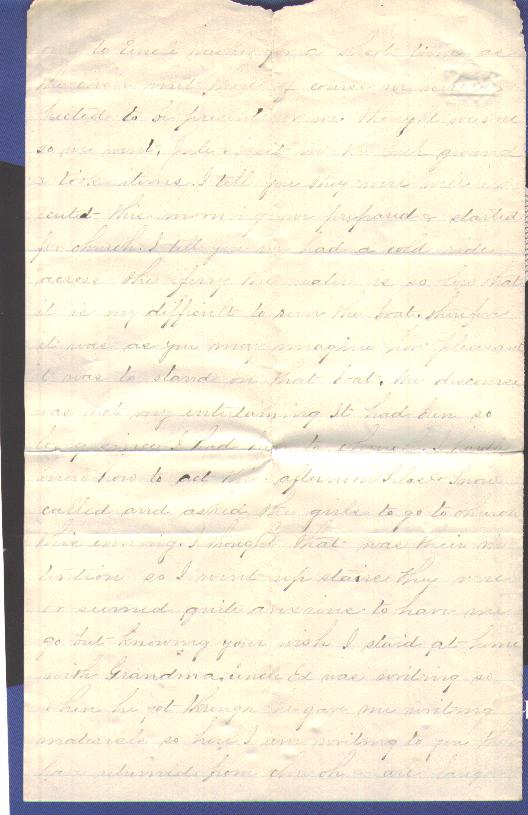 to Uncle for a short time as
the of course we were
pected to be present for we thought
so we went. on the sick ground
& took items. I tell you they were well
cuted this morning we prepared & started
for church. I tell you we had a cold ride
across the ferry the water is so low that
it is very difficult to run the boat. therefore
it was as you may imagine how pleasant
it was to stand on that boat. the discourse
was not very entertaining It had been so
long since I had been to church I hardly
know how to act this afternoon Silas & Snow
called and asked the girls to go to church
this evening. I thought that was their in
tention so I went up stairs they were
or seemed quite anxious to have me
go but knowing your wish I staid at home
with Grandma. Uncle Ed was writing so
when he got through he gave me writing
materials so here I am writing to you they
have returned from church & are